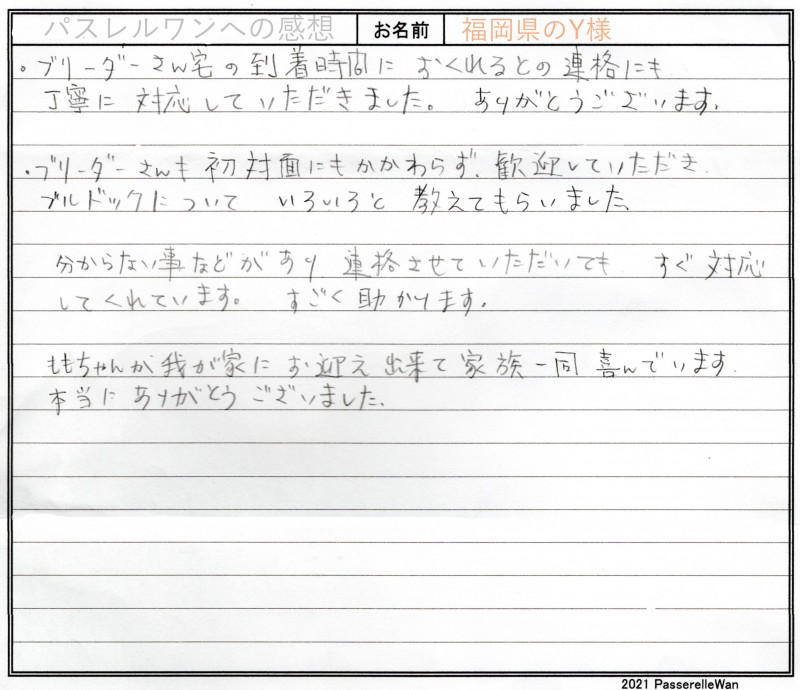 パスレルワンへの感想 お名前 福岡県のY様
・ブリーダーさん宅の到着時間に おくれるとの連格にも
丁寧に 対応していただきました。 ありがとうございます。
・ブリーダーさんも 初対面にもかかわらず、歓迎していただき
ブルドックについて いろいろと 教えてもらいました。
分からない事などがあり 連格させていただいても すぐ対応
してくれています。 すごく助かります。
ももちゃんが我が家に お迎え出来て家族一同喜んでいます
本当に ありがとうございました。
2021 PasserelleWan